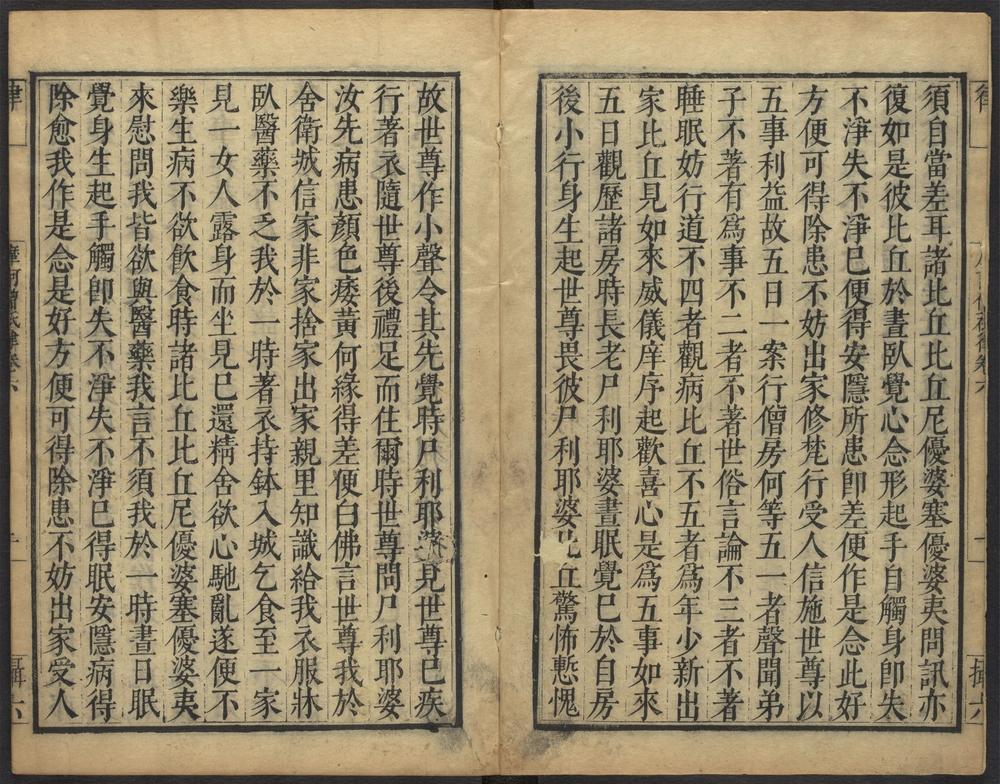 須自當差耳諸比丘比丘尼優婆塞優婆夷問訊亦
復如是彼比丘於晝臥覺心念形起手自觸身即失
不淨失不淨已便得安隱所患即差便作是念此好
方便可得除患不妨出家修梵行受人信施世尊以
五事利益故五日一案行僧房何等五一者聲聞弟
子不著有為事不二者不著世俗言論不三者不著
睡眠妨行道不四者觀病比丘不五者為年少新出
家比丘見如來威儀庠序起歡喜心是為五事如來
五日觀歷諸房時長老尸利耶婆晝眠覺已於自房
後小行身生起世尊畏彼尸利耶婆比丘驚怖慙愧
故世尊作小聲令其先覺時尸利耶婆見世尊已疾
行著衣隨世尊後禮足而住爾時世尊問尸利耶婆
汝先病患顏色痿黃何緣得差便白佛言世尊我於
舍衛城信家非家捨家出家親里知識給我衣服牀
臥醫藥不乏我於一時著衣持鉢入城乞食至一家
見一女人露身而坐見已還精舍欲心馳亂遂便不
樂生病不欲飲食時諸比丘比丘尼優婆塞優婆夷
來慰問我皆欲與醫藥我言不須我於一時晝日眠
覺身生起手觸即失不淨失不淨已得眠安隱病得
除愈我作是念是好方便可得除患不妨出家受人
律
摩訶僧祇律卷六
六